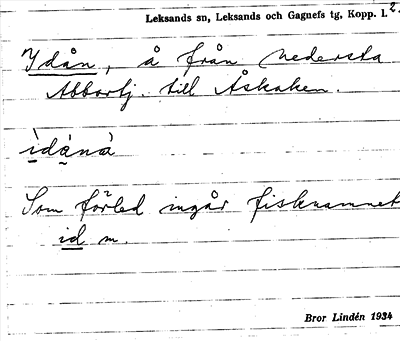 Leksands sn, Leksands och Gagnefs tg, Kopp. l. 2.
Ydån, å från Nedersta
Abbortj. till Åskaken.
ìdánà
Som förled ingår fisknamnet
id m.
Bror Lindén 1934